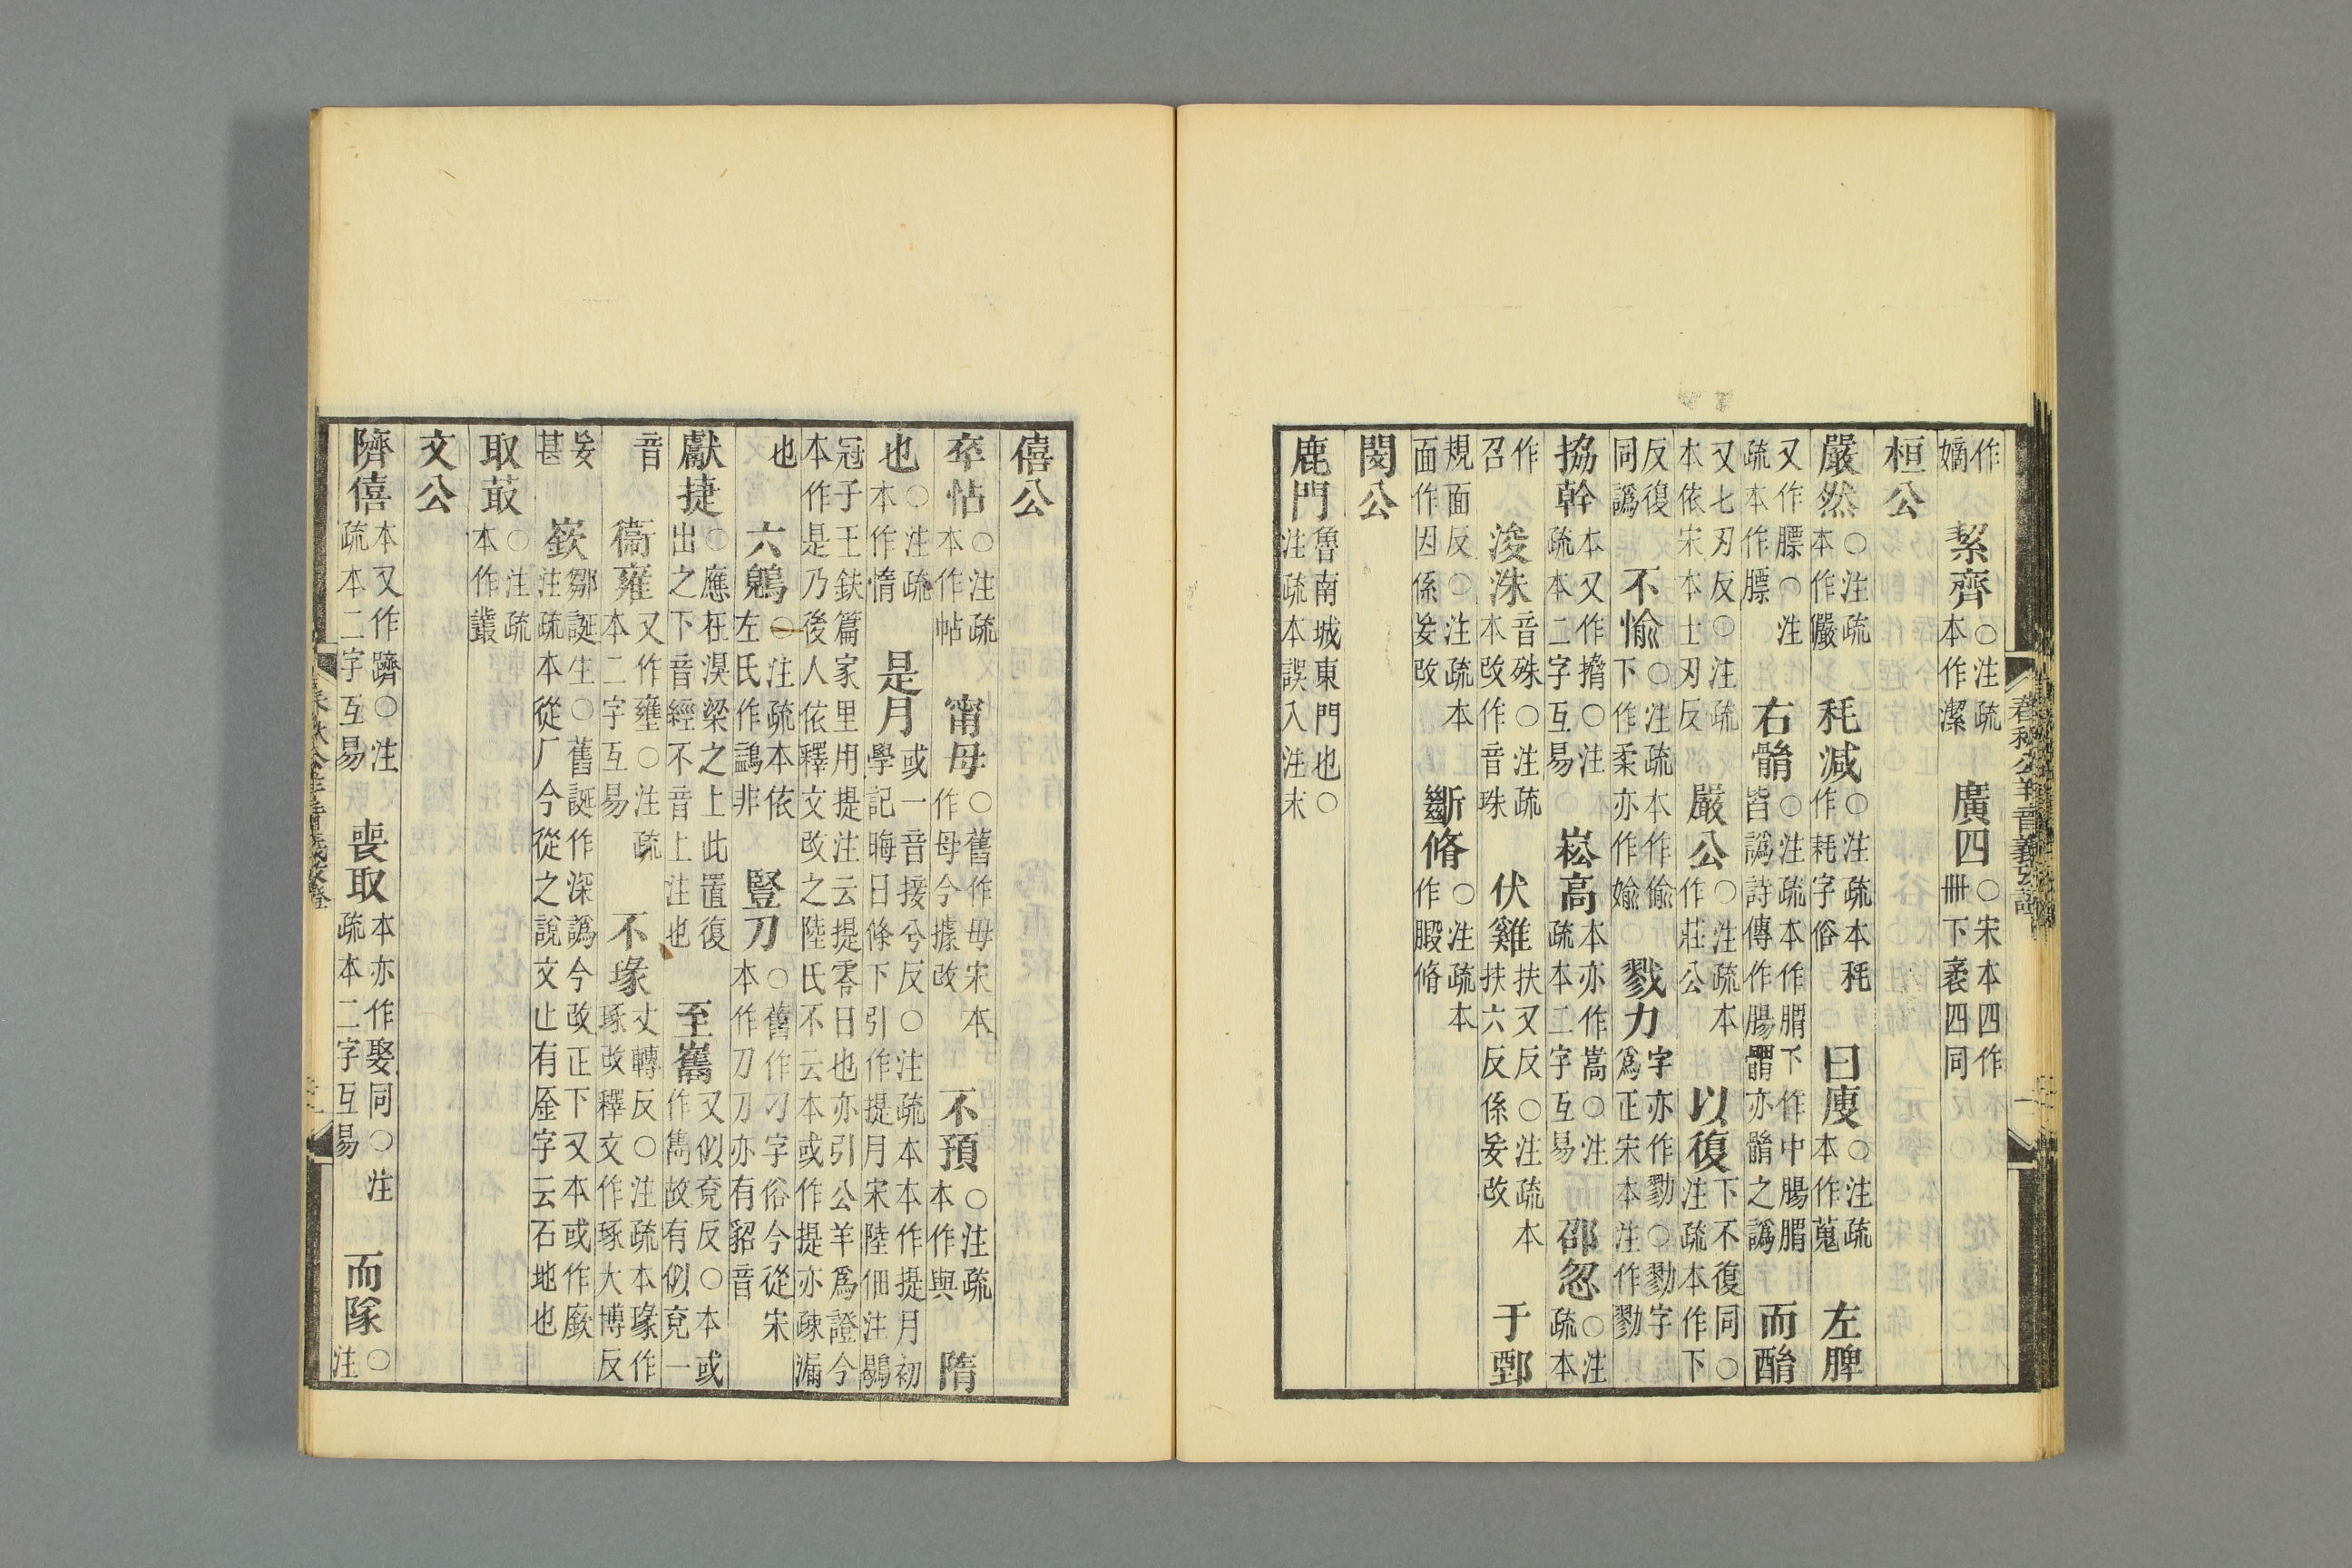 作嫡 絜齊○注疏本作潔 廣四○宋本四作冊下袤四同
桓公
嚴然○注疏本作儼 秏減○注疏本秏作耗字俗 曰廋○注疏本作蒐 左脾
又作膘○注疏本作膘 右髃○注疏本作腢下作中腸腢皆譌詩傳作腸髃亦髃之譌 而酳
又七刃反○注疏本依宋本士刃反 嚴公○注疏本作莊公 以復下不復同○注疏本作下
反復同譌 不愉○注疏本作偷下作柔亦作媮 戮力字亦作勠○勠字爲正宋本注作勠
搚幹本又作擸○注疏本二字互易 崧高本亦作嵩○注疏本二字互易 邵忽○注疏本
作召 浚洙音殊○注疏本改作音珠 伏雞扶又反○注疏本扶六反係妄改 于鄄
規面反○注疏本面作因係妄改 斷脩○注疏本作腶脩
閔公
鹿門魯南城東門也○注疏本誤入注末
僖公
卒怗○注疏本作帖 甯母○舊作毋宋本作母今據改 不預○注疏本作與 隋
也○注疏本作惰 是月或一音接兮反○注疏本本作提月初學記晦日條下引作提月宋陸佃注鶡
冠子王鈇篇家里用提注云提零日也亦引公羊爲證今本作是乃後人依釋文改之陸氏不云本或作提亦疎漏
也 六鶂○注疏本依左氏作鷁非 豎刀○舊作刁字俗今從宋本作刀刀亦有貂音
獻捷○應在湨梁之上此置復出之下音經不音上注也 至巂又似兗反○本或作雋故有似兗一
音 衞雍又作壅○注疏本二字互易 不瑑丈轉反○注疏本瑑作琢改釋文作琢大博反
妄甚 嶔鄒誕生○舊誕作深譌今改正下又本或作廞注疏本從厂今從之說文止有厜字云石地也
取菆○注疏本作叢
文公
隮僖本又作躋○注疏本二字互易 喪取本亦作娶同○注疏本二字互易 而隊○注